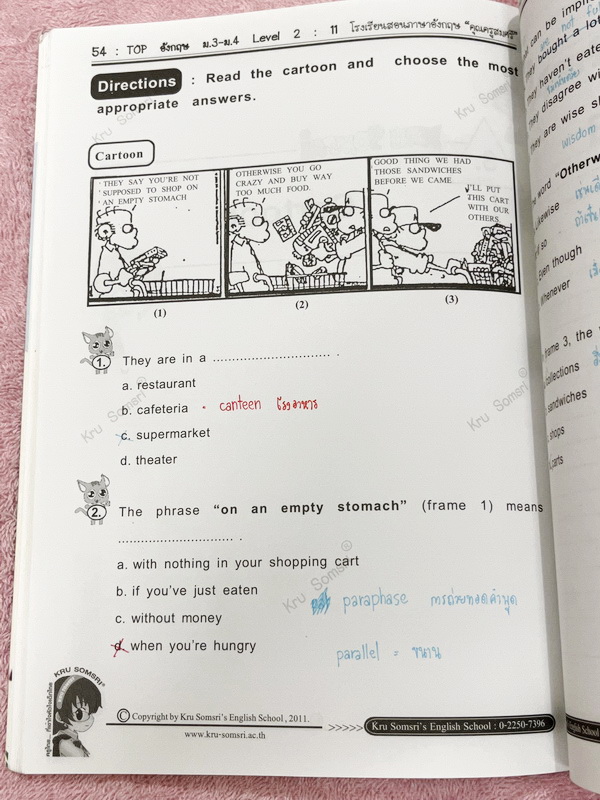 54 : TOP อังกฤษ ม.3-ม.4 Level 2 : 11 โรงเรียนสอนภาษาอังกฤษ "คุณครูสมศรี"
Directions : Read the cartoon and choose the most
appropriate answers.
Cartoon
THEY SAY YOU'RE NOT
SUPPOSED TO SHOP ON
AN EMPTY STOMACH
OTHERWISE YOU GO
CRAZY AND BUY WAY
TOO MUCH FOOD.
GOOD THING WE HAD
THOSE SANDWICHES
BEFORE WE CAME.
I'LL PUT
THIS CART
WITH OUR
OTHERS.
(1)
(2)
(3)
1. They are in a .............................. .
a. restaurant
b. cafeteria • canteen โรงอาหาร
c. supermarket
d. theater
2. The phrase "on an empty stomach" (frame 1) means
.............................. .
a. with nothing in your shopping cart
b. if you've just eaten
c. without money
d. when you're hungry
paraphase การถ่ายทอดคำพูด
parallel = ขนาน
Kru Somsri ®
Kru Somsri
Kru Somsri ®
Kru Somsri
KRU SOMSRI®
© Copyright by Kru Somsri's English School , 2011.
www.kru-somsri.ac.th
>>>>> Kru Somsri's English School : 0-2250-7396
can be impli
bought a lot
haven't eate
disagree wi
are wise sh
wisdom
word "Otherw
Likewise
so
Even though
Whenever
frame 3, the
collections
sandwiches
shops
carts
English School :